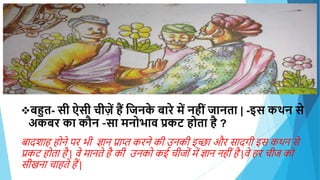 ❖बहुत- सी ऐसी चीज़ें हैं जिनके बारे में नहीं जानता | -इस कथन से
अकबर का कौन -सा मनोभाव प्रकट होता है ?
बादशाह होने पर भी ज्ञान प्राप्त करने की उनकी इच्छा और सादगी इस कथन से
प्रकट होता है | वे मानते है की उनको कई चीजों में ज्ञान नहीं है | वे हर चीज को
सीखना चाहते हैं |